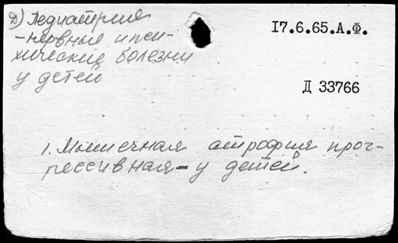 Д) Педиатрия
- нервные и пси-
хические болезни
у детей
17.6.65.А.Ф.
Д 33766
1. Мышечная атрофия прог-
рессивная - у детей.